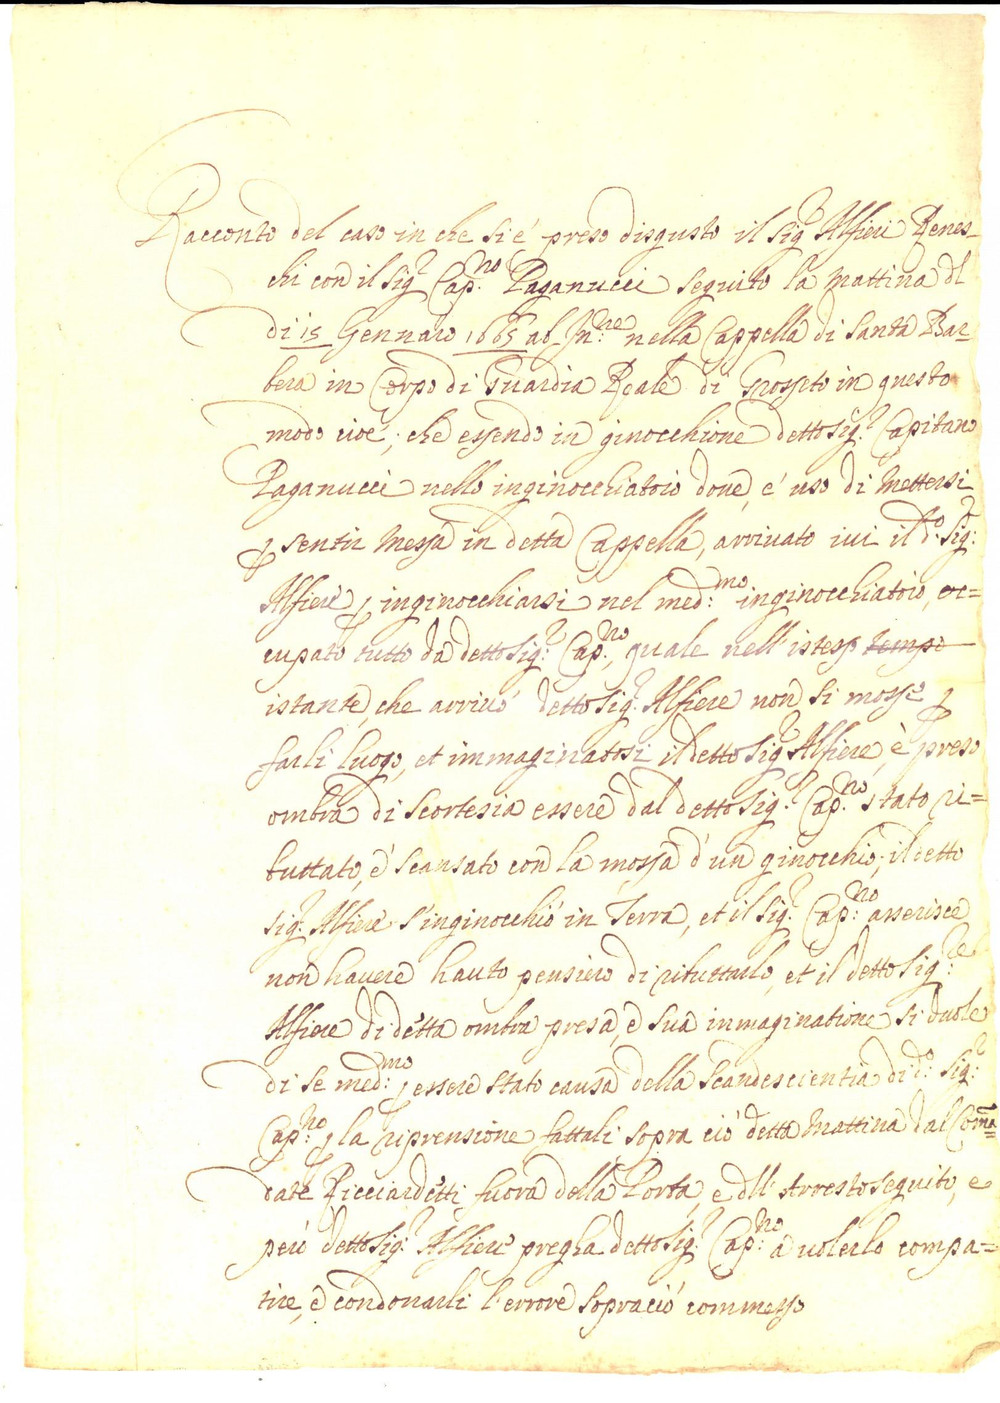 Racconto del caso in che si è preso disgusto il Sig.r Alfieri Benes-
chi con il Sig.r Cap.no Paganucci seguito la mattina dl
di 15 Gennaro 1665 ab Jn.ne nella Cappella di Santa Bar-
bera in Corpo di Guardia Reale di Grosseto in questo
modo cioè; che essendo in ginocchione detto Sig.r Capitano
Paganucci nello inginocchiatoio dove è uso di mettersi
p sentir Messa in detta Cappella, arrivato ivi il d.o Sig.r
Alfiere p inginocchiarsi nel med.mo inginocchiatoio, oc=
cupato tutto da detto Sig.r Cap.no, quale nell'istesso tempo
istante, che arrivò detto Sig.r Alfiere non si mosse p
farli luogo, et immaginatosi il detto Sig.r Alfiere, è preso
ombra di scortesia essere dal detto Sig.r Cap.no stato ri=
buttato, è scansato con la mossa d'un ginocchio; il detto
Sig.r Alfiere s'inginocchiò in Terra, et il Sig.r Cap.no asserisce
non havere hauto pensiero di ributtarlo, et il detto Sig.re
Alfiere di detta ombra presa, è sua inmaginatione si duole
di se med.mo p essere stato causa della Scandescientia di d.o Sig.r
Cap.no p la riprensione fattali sopra ciò detta mattina dal Coma=
date Ricciardetti fuora della Porta, e dll'Arresto seguito, e
però detto Sig.r Alfiere pregha detto Sig.r Cap.no à volerlo compa=
tire, è condonarli l'errore sopraciò commesso